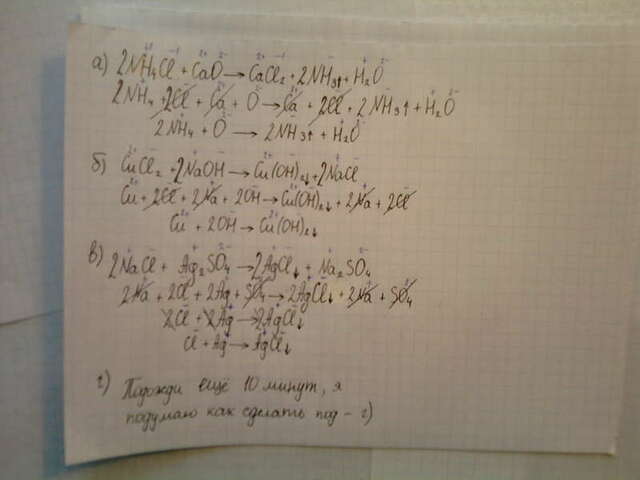 а) 2NH₄⁺Cl⁻¹ + Ca²⁺O²⁻ → Ca²⁺Cl₂⁻¹ + 2NH₃↑ + H₂⁺O²⁻
2NH₄⁺ + 2Cl⁻ + Ca²⁺ + O²⁻ → Ca²⁺ + 2Cl⁻ + 2NH₃↑ + H₂⁺O²⁻
2NH₄⁺ + O²⁻ → 2NH₃↑ + H₂⁺O²⁻
б) Cu²⁺Cl₂⁻ + 2Na⁺OH⁻ → Cu²⁺(OH)⁻₂↓ + 2Na⁺Cl⁻
Cu²⁺ + 2Cl⁻ + 2Na⁺ + 2OH⁻ → Cu²⁺(OH)⁻₂↓ + 2Na⁺ + 2Cl⁻
Cu²⁺ + 2OH⁻ → Cu²⁺(OH)⁻₂↓
в) 2Na⁺Cl⁻ + Ag₂⁺SO₄²⁻ → 2Ag⁺Cl⁻↓ + Na₂⁺SO₄²⁻
2Na⁺ + 2Cl⁻ + 2Ag⁺ + SO₄²⁻ → 2Ag⁺Cl⁻↓ + 2Na⁺ + SO₄²⁻
2Cl⁻ + 2Ag⁺ → 2Ag⁺Cl⁻↓
Cl⁻ + Ag⁺ → Ag⁺Cl⁻↓
г) Подожди ещё 10 минут, я
подумаю как сделать под - г)